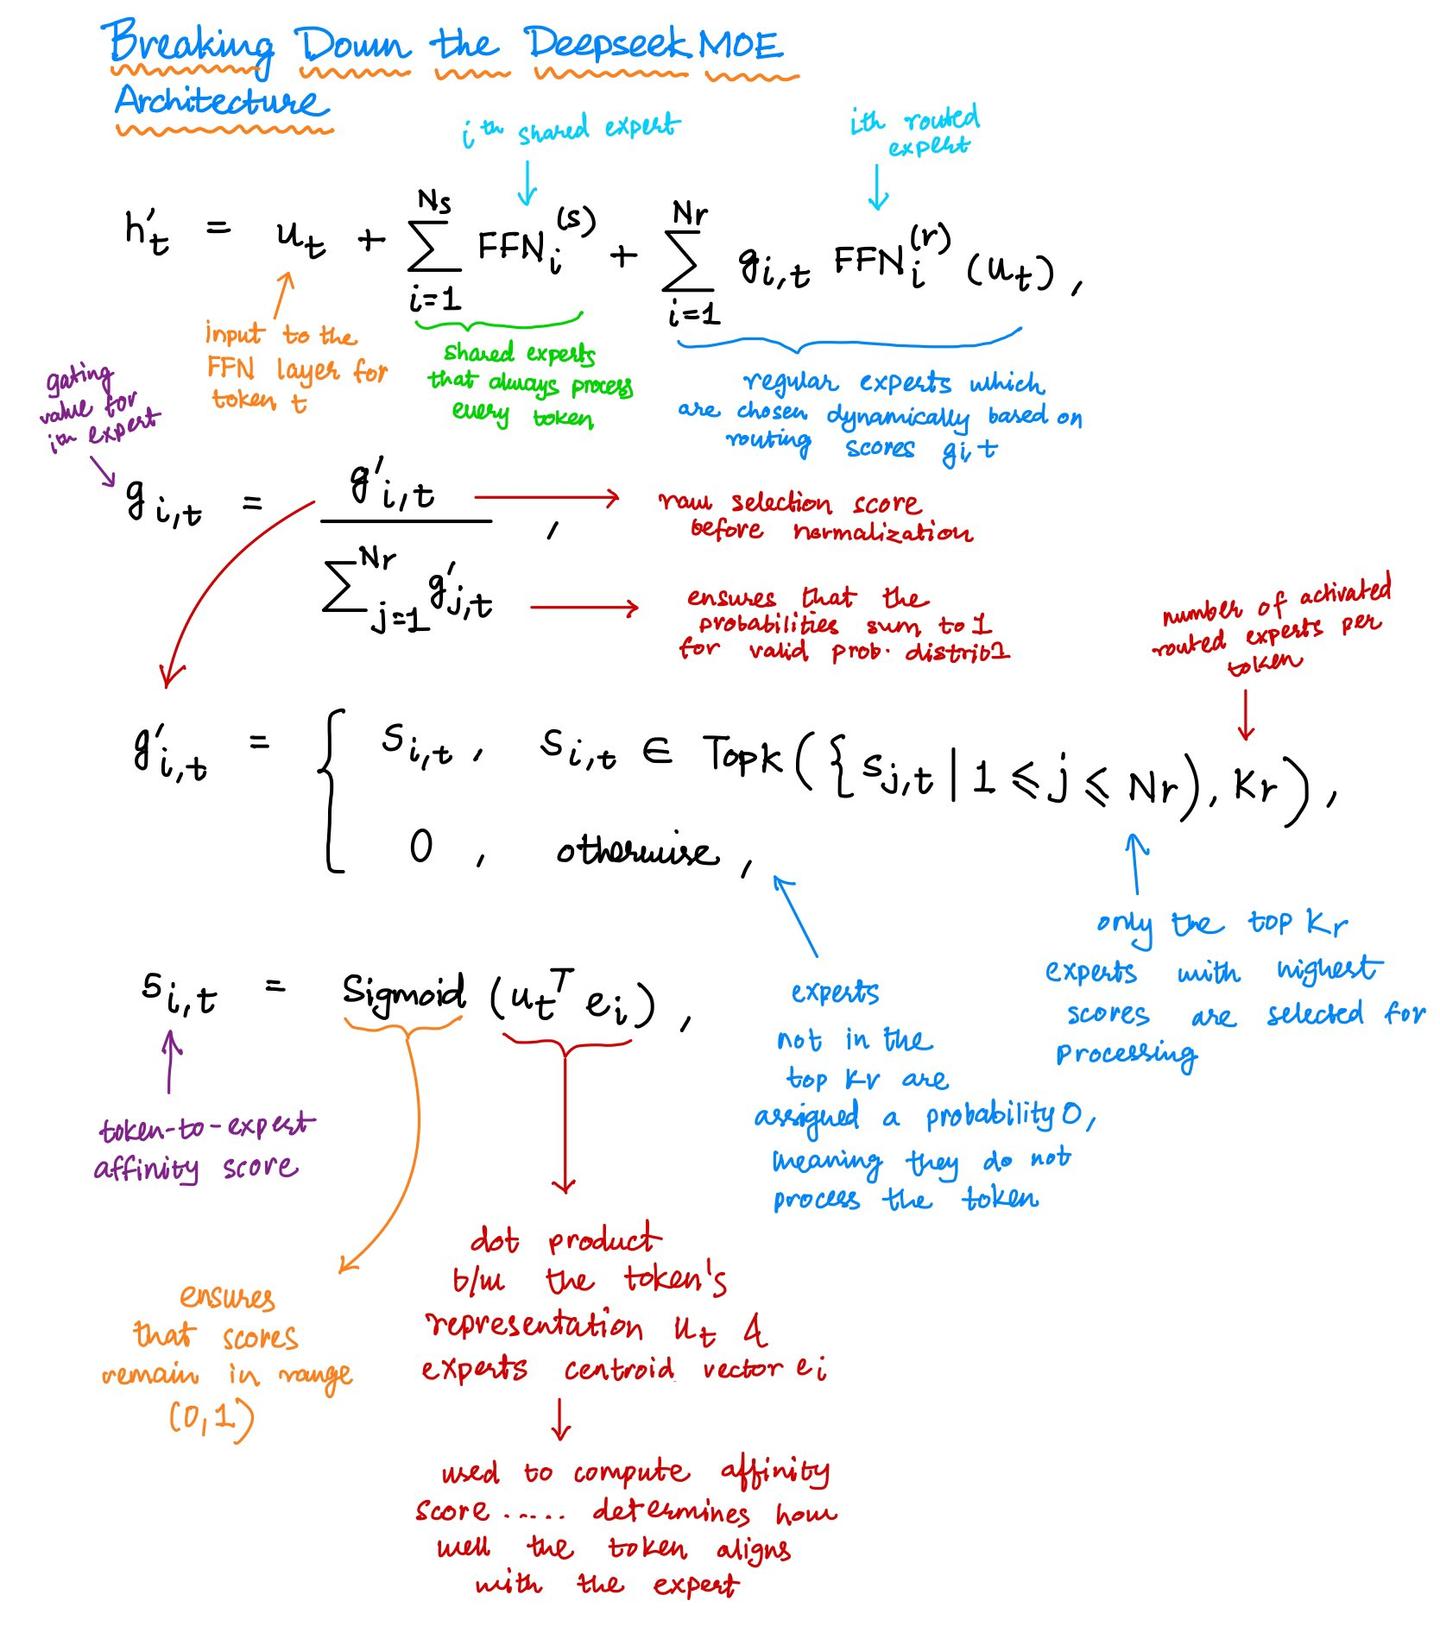 Breaking Down the Deepseek MOE
Architecture
iᵗʰ shared expert
ith routed
expert
h′ₜ = uₜ + ∑_{i=1}^{Ns} FFNᵢ⁽ˢ⁾ + ∑_{i=1}^{Nr} g_{i,t} FFNᵢ⁽ʳ⁾ (uₜ) ,
input to the
FFN layer for
token t
shared experts
that always process
every token
regular experts which
are chosen dynamically based on
routing scores gi,t
gating
value for
ith expert
g_{i,t} = g′_{i,t} / ∑_{j=1}^{Nr} g′_{j,t} ,
raw selection score
before normalization
ensures that the
probabilities sum to 1
for valid prob. distrib1
number of activated
routed experts per
token
g′_{i,t} = { s_{i,t} , s_{i,t} ∈ Topk ( { s_{j,t} | 1 ⩽ j ⩽ Nr ) , Kr ) ,
0 , otherwise ,
only the top Kr
experts with highest
scores are selected for
processing
experts
not in the
top Kr are
assigned a probability 0,
meaning they do not
process the token
s_{i,t} = Sigmoid (uₜᵀ eᵢ) ,
token-to-expert
affinity score
ensures
that scores
remain in range
(0,1)
dot product
b/w the token's
representation uₜ &
experts centroid vector eᵢ
used to compute affinity
score ..... determines how
well the token aligns
with the expert